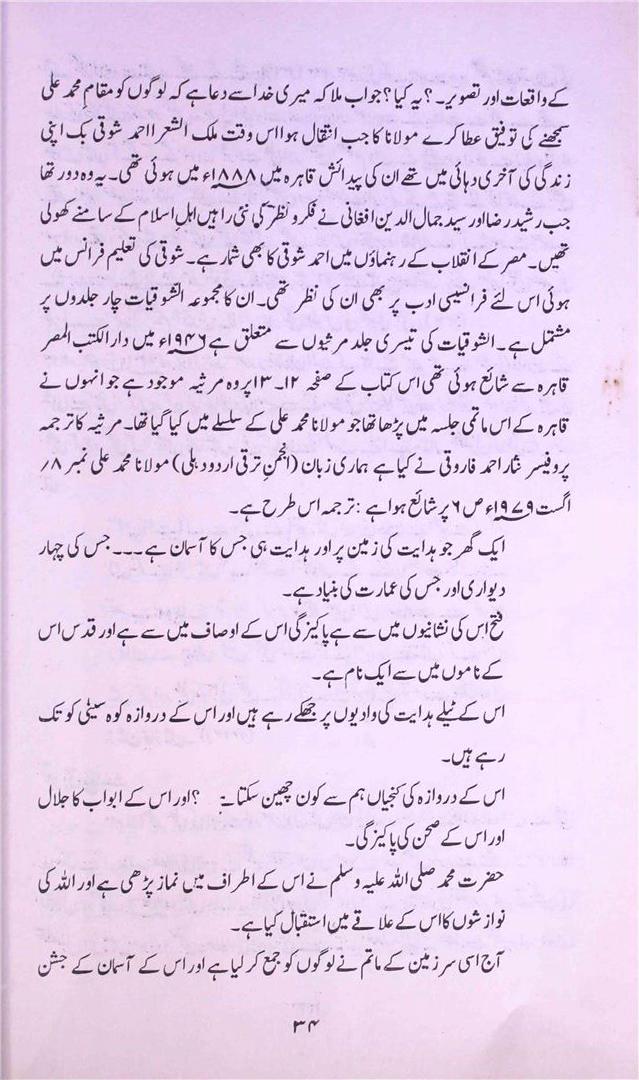 کے واقعات اور تصویر۔؟ یہ کیا؟ جواب ملا کہ میری خدا سے دعا ہے کہ لوگوں کو مقامِ محمد علی
سمجھنے کی توفیق عطا کرے مولانا کا جب انتقال ہوا اس وقت ملک الشعرا احمد شوقی بک اپنی
زندگی کی آخری دہائی میں تھے ان کی پیدائش قاہرہ میں ۱۸۸۸ء میں ہوئی تھی۔ یہ وہ دور تھا
جب رشید رضا اور سید جمال الدین افغانی نے فکر و نظر کی نئی راہیں اہل اسلام کے سامنے کھولی
تھیں۔ مصر کے انقلاب کے رہنماؤں میں احمد شوقی کا بھی شمار ہے۔ شوقی کی تعلیم فرانس میں
ہوئی اس لئے فرانسیسی ادب پر بھی ان کی نظر تھی۔ ان کا مجموعہ الشوقیات چار جلدوں پر
مشتمل ہے۔ الشوقیات کی تیسری جلد مرثیوں سے متعلق ہے ۱۹۴۶ء میں دار الکتب المصر
قاہرہ سے شائع ہوئی تھی اس کتاب کے صفحہ ۱۲۔۱۳ پر وہ مرثیہ موجود ہے جو انہوں نے
قاہرہ کے اس ماتمی جلسہ میں پڑھا تھا جو مولانا محمد علی کے سلسلے میں کیا گیا تھا۔ مرثیہ کا ترجمہ
پروفیسر نثار احمد فاروقی نے کیا ہے ہماری زبان (انجمن ترقی اردو دہلی) مولانا محمد علی نمبر ۸؍
اگست ۱۹۷۹ء ص ۶ پر شائع ہوا ہے : ترجمہ اس طرح ہے۔
ایک گھر جو ہدایت کی زمین پر اور ہدایت ہی جس کا آسمان ہے۔۔۔ جس کی چہار
دیواری اور جس کی عمارت کی بنیاد ہے۔
فتح اس کی نشانیوں میں سے ہے پاکیزگی اس کے اوصاف میں سے ہے اور قدس اس
کے ناموں میں سے ایک نام ہے۔
اس کے ٹیلے ہدایت کی وادیوں پر جھکے رہے ہیں اور اس کے دروازہ کوہ سینیٰ کو تک
رہے ہیں۔
اس کے دروازہ کی کنجیاں ہم سے کون چھین سکتا ہے ؟ اور اس کے ابواب کا جلال
اور اس کے صحن کی پاکیزگی۔
حضرت محمد صلی اللہ علیہ وسلم نے اس کے اطراف میں نماز پڑھی ہے اور اللہ کی
نوازشوں کا اس کے علاقے میں استقبال کیا ہے۔
آج اسی سرزمین کے ماتم نے لوگوں کو جمع کر لیا ہے اور اس کے آسمان کے جشن
۳۴